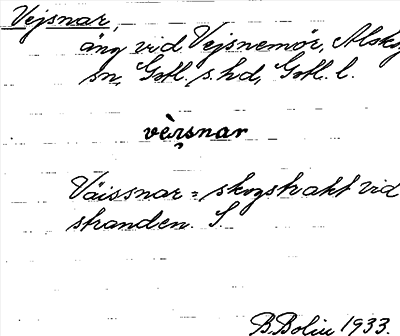 Vejsnar,
äng vid Vejsnemör, Alskog
sn, Gotl. s. hd, Gotl. l.
Väissnar = skogstrakt vid
stranden. S.
B. Bolin 1933.